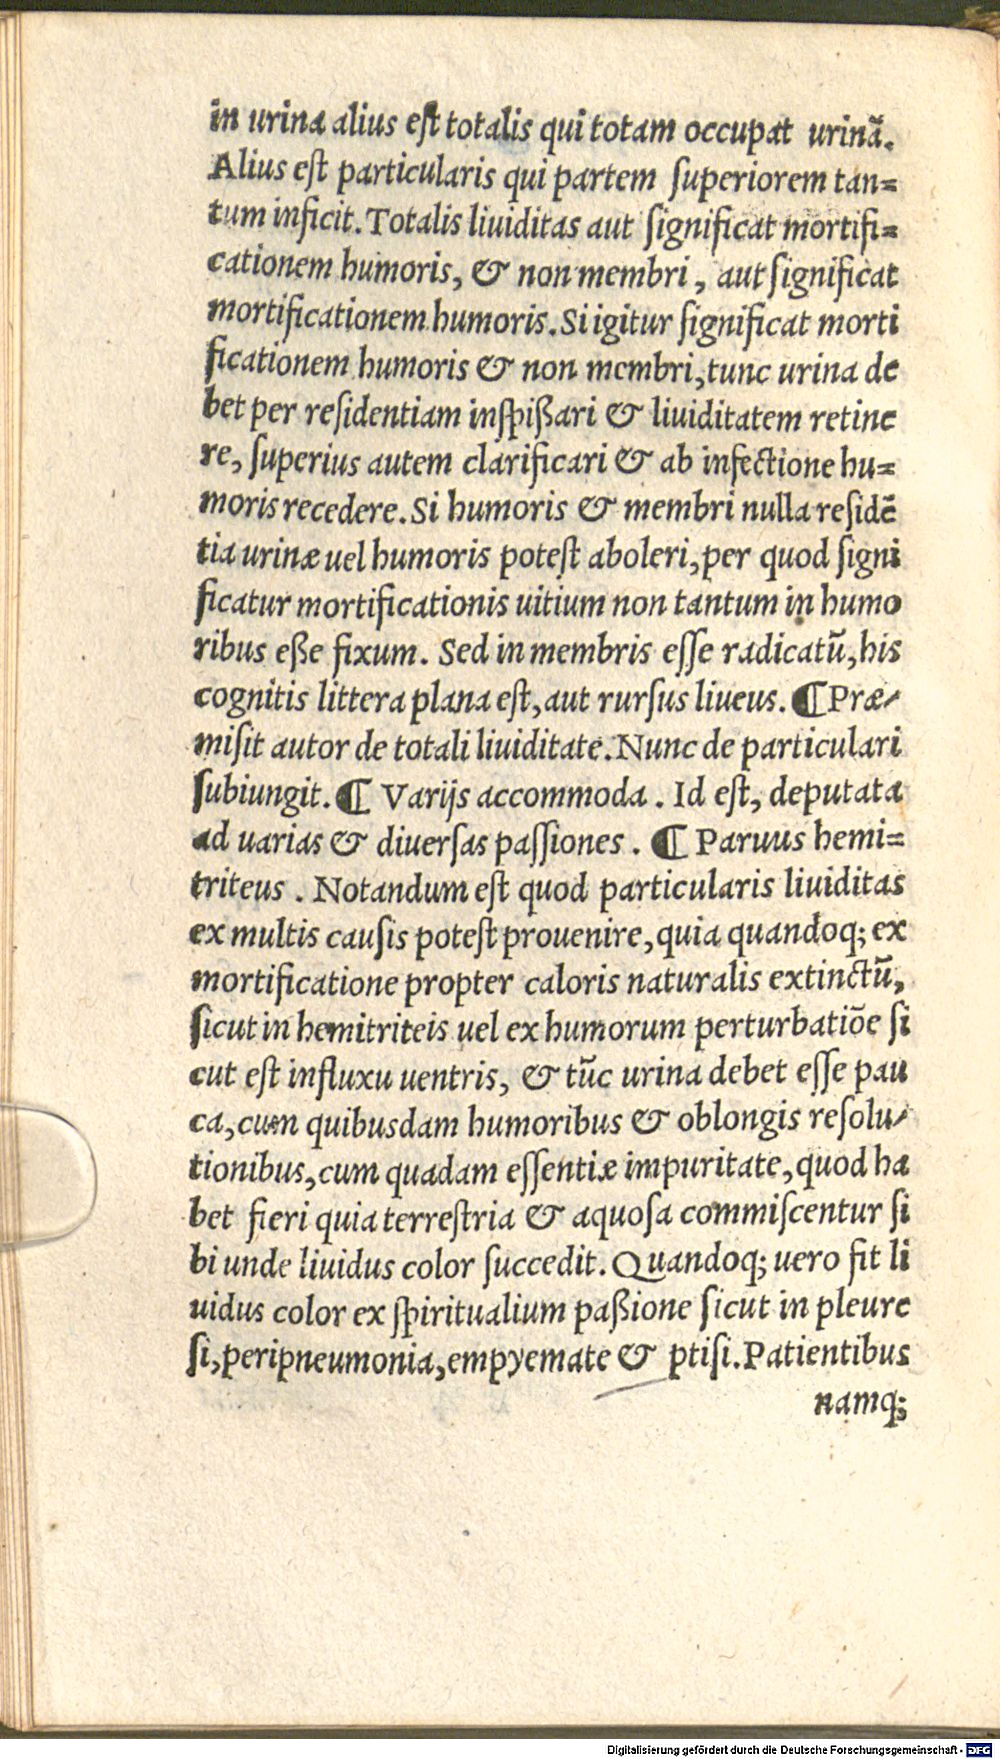 in urina alius est totalis qui totam occupat urinã.
Alius est particularis qui partem superiorem tan=
tum inficit. Totalis liuiditas aut significat mortifi=
cationem humoris, & non membri, aut significat
mortificationem humoris. Si igitur significat morti
ficationem humoris & non membri, tunc urina de
bet per residentiam inspißari & liuiditatem retine
re, superius autem clarificari & ab infectione hu=
moris recedere. Si humoris & membri nulla residẽ
tia urinæ uel humoris potest aboleri, per quod signi
ficatur mortificationis uitium non tantum in humo
ribus eße fixum. Sed in membris esse radicatũ, his
cognitis littera plana est, aut rursus liueus. ¶ Præ-
misit autor de totali liuiditate. Nunc de particulari
subiungit. ¶ Varijs accommoda. Id est, deputata
ad uarias & diuersas passiones. ¶ Paruus hemi=
triteus. Notandum est quod particularis liuiditas
ex multis causis potest prouenire, quia quandoq; ex
mortificatione propter caloris naturalis extinctũ,
sicut in hemitriteis uel ex humorum perturbatiõe si
cut est influxu uentris, & tũc urina debet esse pau
ca, cum quibusdam humoribus & oblongis resolu-
tionibus, cum quadam essentiæ impuritate, quod ha
bet fieri quia terrestria & aquosa commiscentur si
bi unde liuidus color succedit. Quandoq; uero fit li
uidus color ex spiritualium paßione sicut in pleure
si, peripneumonia, empyemate & ptisi. Patientibus
namq;
Digitalisierung gefördert durch die Deutsche Forschungsgemeinschaft - DFG